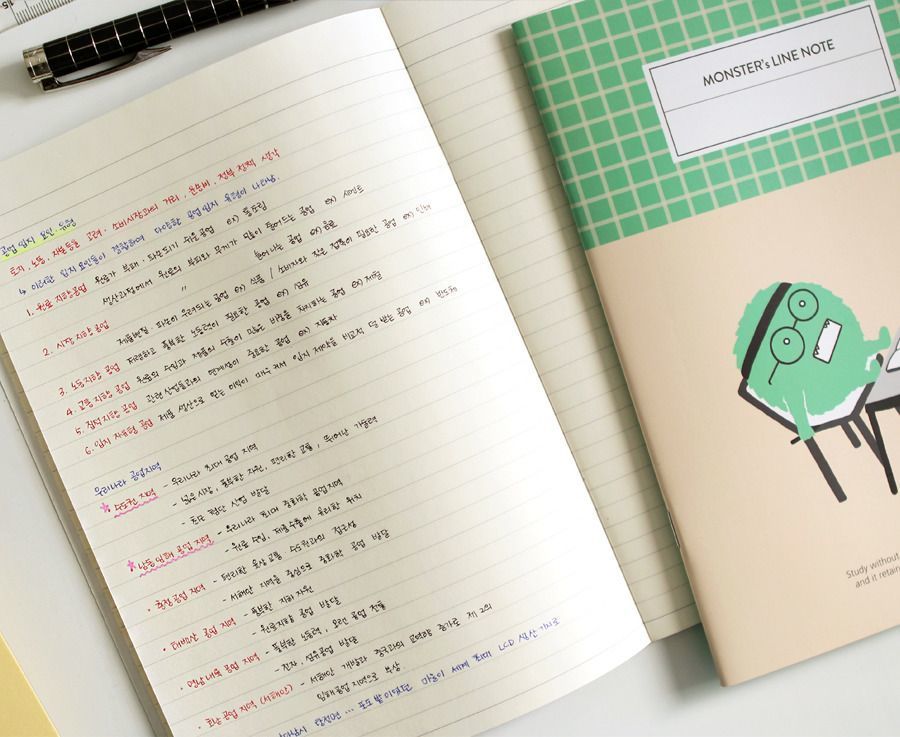 공업 입지 요인. 유형
토지. 노동. 자본등을 고려. 소비시장과의 거리, 운송비. 정부 정책 생각
↳ 이러한 입지 요인들이 결합하여 다양한 공업입지 유형이 나타남.
1. 원료 지향공업 원료가 부패·파손되기 쉬운 공업 ex) 통조림
생산과정에서 원료의 부피와 무게가 많이 줄어드는 공업 ex) 시멘트
2. 시장 지향 공업 〃 늘어나는 공업 ex) 음료
제품변질. 파손이 우려되는 공업 ex) 식품 / 소비자와 잦은 접촉이 필요한 공업 ex) 인쇄
3. 노동지향 공업 저렴하고 풍부한 노동력이 필요한 공업 ex) 섬유
4. 교통지향 공업 원료의 수입과 제품의 수출이 많은 비중을 차지하는 공업 ex) 제철
5. 집적지향 공업 관련산업들과의 연계성이 중요한 공업 ex) 자동차
6. 입지 자유형 공업 제품 생산으로 얻는 이익이 매우 커서 입지 제약을 비교적 덜 받는 공업 ex) 반도체
우리나라 공업지역
* 수도권 지역 - 우리나라 최대 공업 지역
- 넓은시장, 풍부한 자원, 편리한 교통, 뛰어난 기술력
- 첨단 산업 발달
* 남동임해 공업 지역 - 우리나라 최대 중화학 공업지역
- 원료 수입, 제품수출에 유리한 위치
· 충청 공업 지역 - 편리한 육상교통 수도권과의 접근성
- 서해안 지역을 중심으로 중화학 공업 발달
· 태백산 공업 지역 - 풍부한 지하자원
- 원료지향 공업 발달
· 영남내륙 공업 지역 - 풍부한 노동력, 오랜 공업 전통
- 전자, 섬유공업 발달
· 호남 공업 지역 (서해안) - 서해안 개발과 중국과의 교역량 증가로 제 2의
임해공업 지역으로 부상
탕정면 ... 포도밭이었던 마을이 세계 최대 LCD 생산 기지로
MONSTER's LINE NOTE
Study without
and it retain